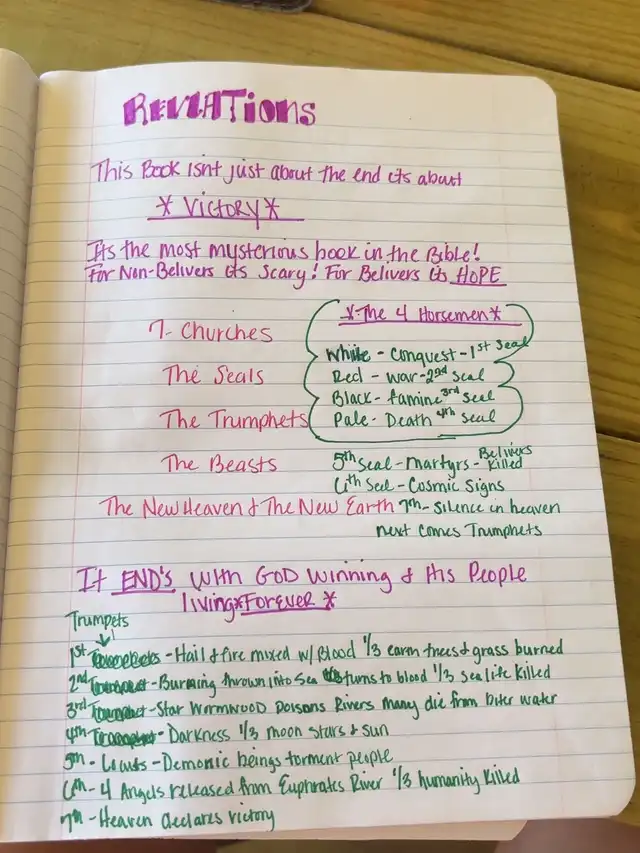 REVLATIONS
This Book isnt just about the end its about
* VICTORY *
Its the most mysterious book in the Bible!
For Non-Belivers its Scary! For Belivers its HOPE
7- Churches
The Seals
The Trumphets
The Beasts
The New Heaven & The New Earth
*-The 4 Horsemen*
White - Conquest - 1st Seal
Red - War - 2nd Seal
Black - famine 3rd Seal
Pale - Death 4th Seal
5th Seal - Martyrs - Belivers Killed
6th Seal - Cosmic Signs
7th - Silence in heaven
next comes Trumphets
It END's with GOD Winning & His People
living*Forever *
Trumpets
1st - Hail & fire mixed w/ Blood 1/3 earth trees & grass burned
2nd - Burning thrown into Sea turns to blood 1/3 sea life killed
3rd - Star Wormwood Poisons Rivers many die from biter water
4th - Darkness 1/3 moon stars & sun
5th - Locuts - Demonic beings torment people
6th - 4 Angels released from Euphrates River 1/3 humanity killed
7th - Heaven declares victory